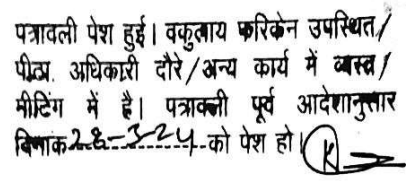 पत्रावली पेश हुई। वकुलाय फरिकेन उपस्थित/
पी०प्र. अधिकारी दौरे/अन्य कार्य में व्यस्त/
मीटिंग में है। पत्रावली पूर्व आदेशानुसार
दिनांक 28-3-24 को पेश हो।